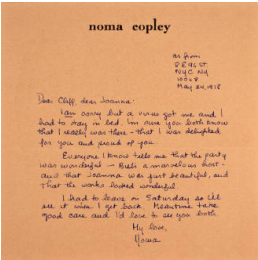 noma copley
as from
8 E 95 St
NYC NY
10028
May 24, 1978
Dear Cliff, dear Joanna:
I am sorry but a virus got me and I
had to stay in bed. I'm sure you both know
that I really was there - that I was delighted
for you and proud of you.
Everyone I know tells me that the party
was wonderful - a marvelous host -
and that Joanna was just beautiful, and
that the works looked wonderful
I had to leave on Saturday so I'll
see it when I get back. Meantime take
good care and I'd love to see you both
My love,
Noma